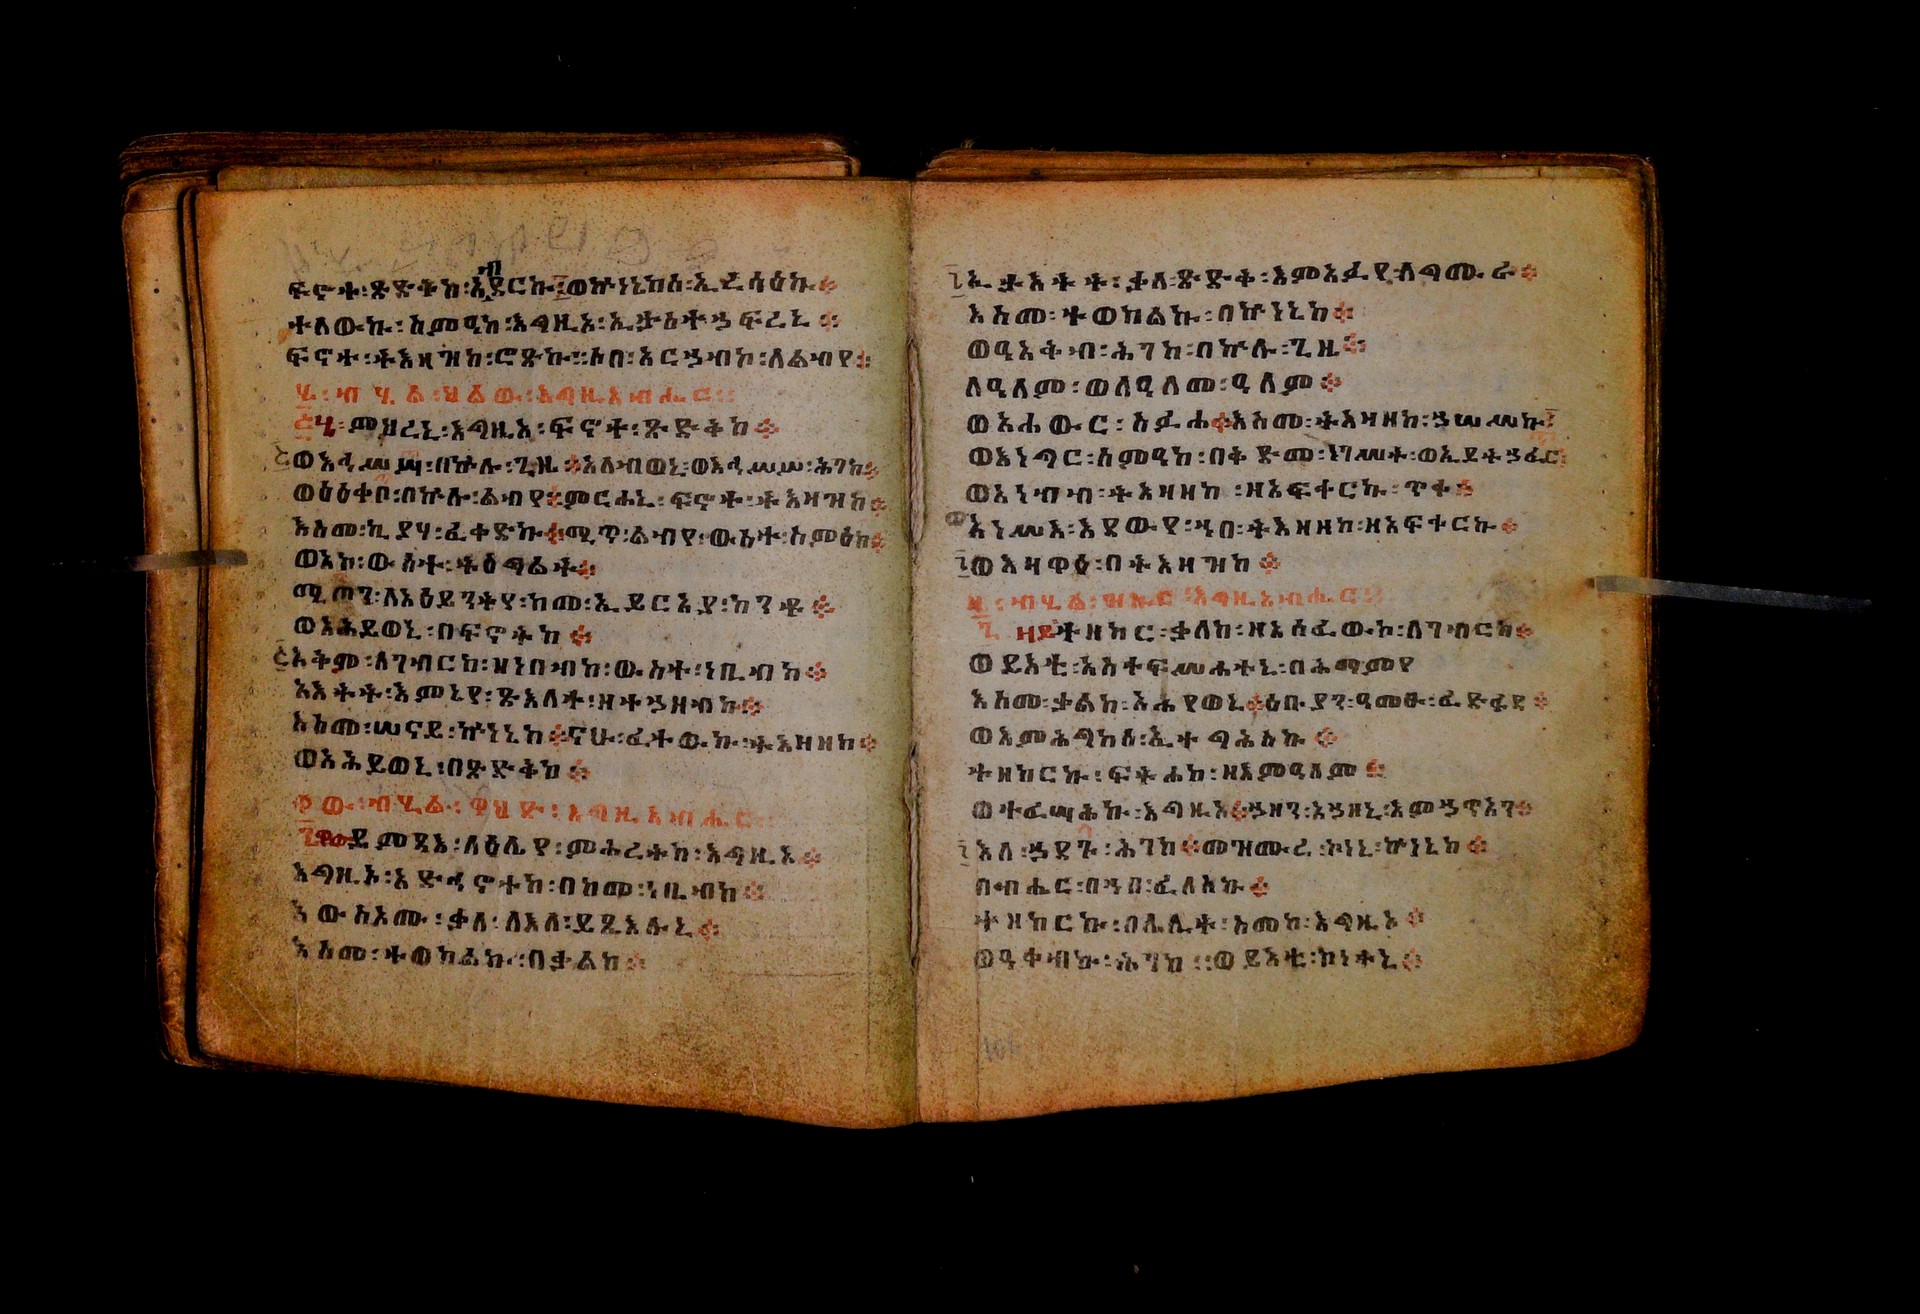 ፍኖተ፡ጽድቅከ፡አብደርኩ፡ወኵነኔከሰ፡ኢረሳዕኩ።
ተለውኩ፡ስምዓከ፡እግዚኦ፡ኢታስተኃፍረኒ።
ፍኖተ፡ትእዛዝከ፡ሮጽኩ፡ሶበ፡አርኃብኮ፡ለልብየ።
ሄ፡ብሂል፡ህልው፡እግዚአብሔር።
ምህረኒ፡እግዚኦ፡ፍኖተ፡ጽድቅከ።
ወእኃሥሣ፡በኵሉ፡ጊዜ።አለብወኒ፡ወእኃሥሥ፡ሕገከ።
ወዕዕቀቦ፡በኵሉ፡ልብየ።ምርሐኒ፡ፍኖተ፡ትእዛዝከ።
እስመ፡ኪያሃ፡ፈቀድኩ።ሚጥ፡ልብየ፡ውስተ፡ስምዕከ።
ወአኮ፡ውስተ፡ትዕግልት።
ሚጦን፡ለአዕይንትየ፡ከመ፡ኢይርአያ፡ከንቱ።
ወአሕይወኒ፡በፍኖትከ።
አቅም፡ለገብርከ፡ዘነበብከ፡ውስተ፡ነቢብከ።
አእትት፡እምኔየ፡ጽእለት፡ዘተኃዘብኩ።
እስመ፡ሠናይ፡ኵነኔከ።ናሁ፡ፈተውኩ፡ትእዛዘከ።
ወአሕይወኒ፡በጽድቅከ።
ዋው፡ብሂል፡ዋህድ፡እግዚአብሔር።
ይምጻእ፡ለዕሌየ፡ምሕረትከ፡እግዚኦ።
እግዚኦ፡አድኅኖተከ፡በከመ፡ነቢብከ።
አውስኦሙ፡ቃለ፡ለእለ፡ይጼእሉኒ።
እስመ፡ተወከልኩ፡በቃልከ።
ኢታእትት፡ቃለ፡ጽድቅ፡እምአፉየ፡ለግሙራ።
እስመ፡ተወከልኩ፡በኵነኔከ።
ወዓአቅብ፡ሕገከ፡በኵሉ፡ጊዜ።
ለዓለም፡ወለዓለመ፡ዓለም።
ወአሐውር፡ስፉሐ።እስመ፡ትእዛዘከ፡ኃሠሥኩ።
ወእነግር፡ስምዓከ፡በቅድመ፡ነገሥት፡ወኢይትኃፈር።
ወአነብብ፡ትእዛዘከ፡ዘአፍቀርኩ፡ጥቀ።
አነሥእ፡እደውየ፡ኀበ፡ትእዛዘከ፡ዘአፍቀርኩ።
ወእዛዋዕ፡በትእዛዝከ።
ዛይ፡ብሂል፡ዝኩር፡እግዚአብሔር።
ተዘከር፡ቃለከ፡ዘአሰፈውኮ፡ለገብርከ።
ወይእቲ፡እስተፍሥሐተኒ፡በሕማምየ
እስመ፡ቃልከ፡አሕየወኒ።ዕቡያን፡ዓመፁ፡ፈድፋደ።
ወእምሕግከሰ፡ኢተግሕስኩ።
ተዘከርኩ፡ፍትሐከ፡ዘእምዓለም።
ወተፈሣሕኩ፡እግዚኦ።ኃዘን፡አኃዘኒ፡እምኃጥአን።
እለ፡ኃደጉ፡ሕገከ።መዝሙረ፡ኮነኒ፡ኵነኔከ።
በብሔር፡በኀበ፡ፈለስኩ።
ተዘከርኩ፡በሌሊት፡ስመከ፡እግዚኦ።
ወዓቀብኩ፡ሕገከ፡።ወይእቲ፡ኮነተኒ።